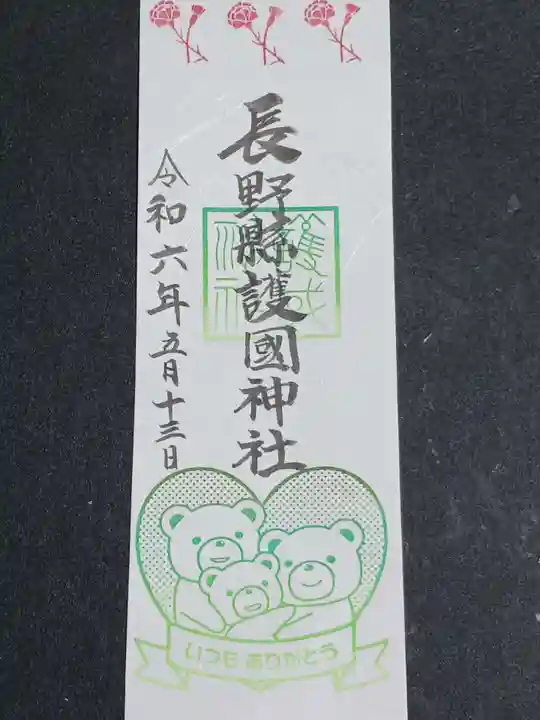 長野縣護國神社
令和六年五月十三日
いつも ありがとう